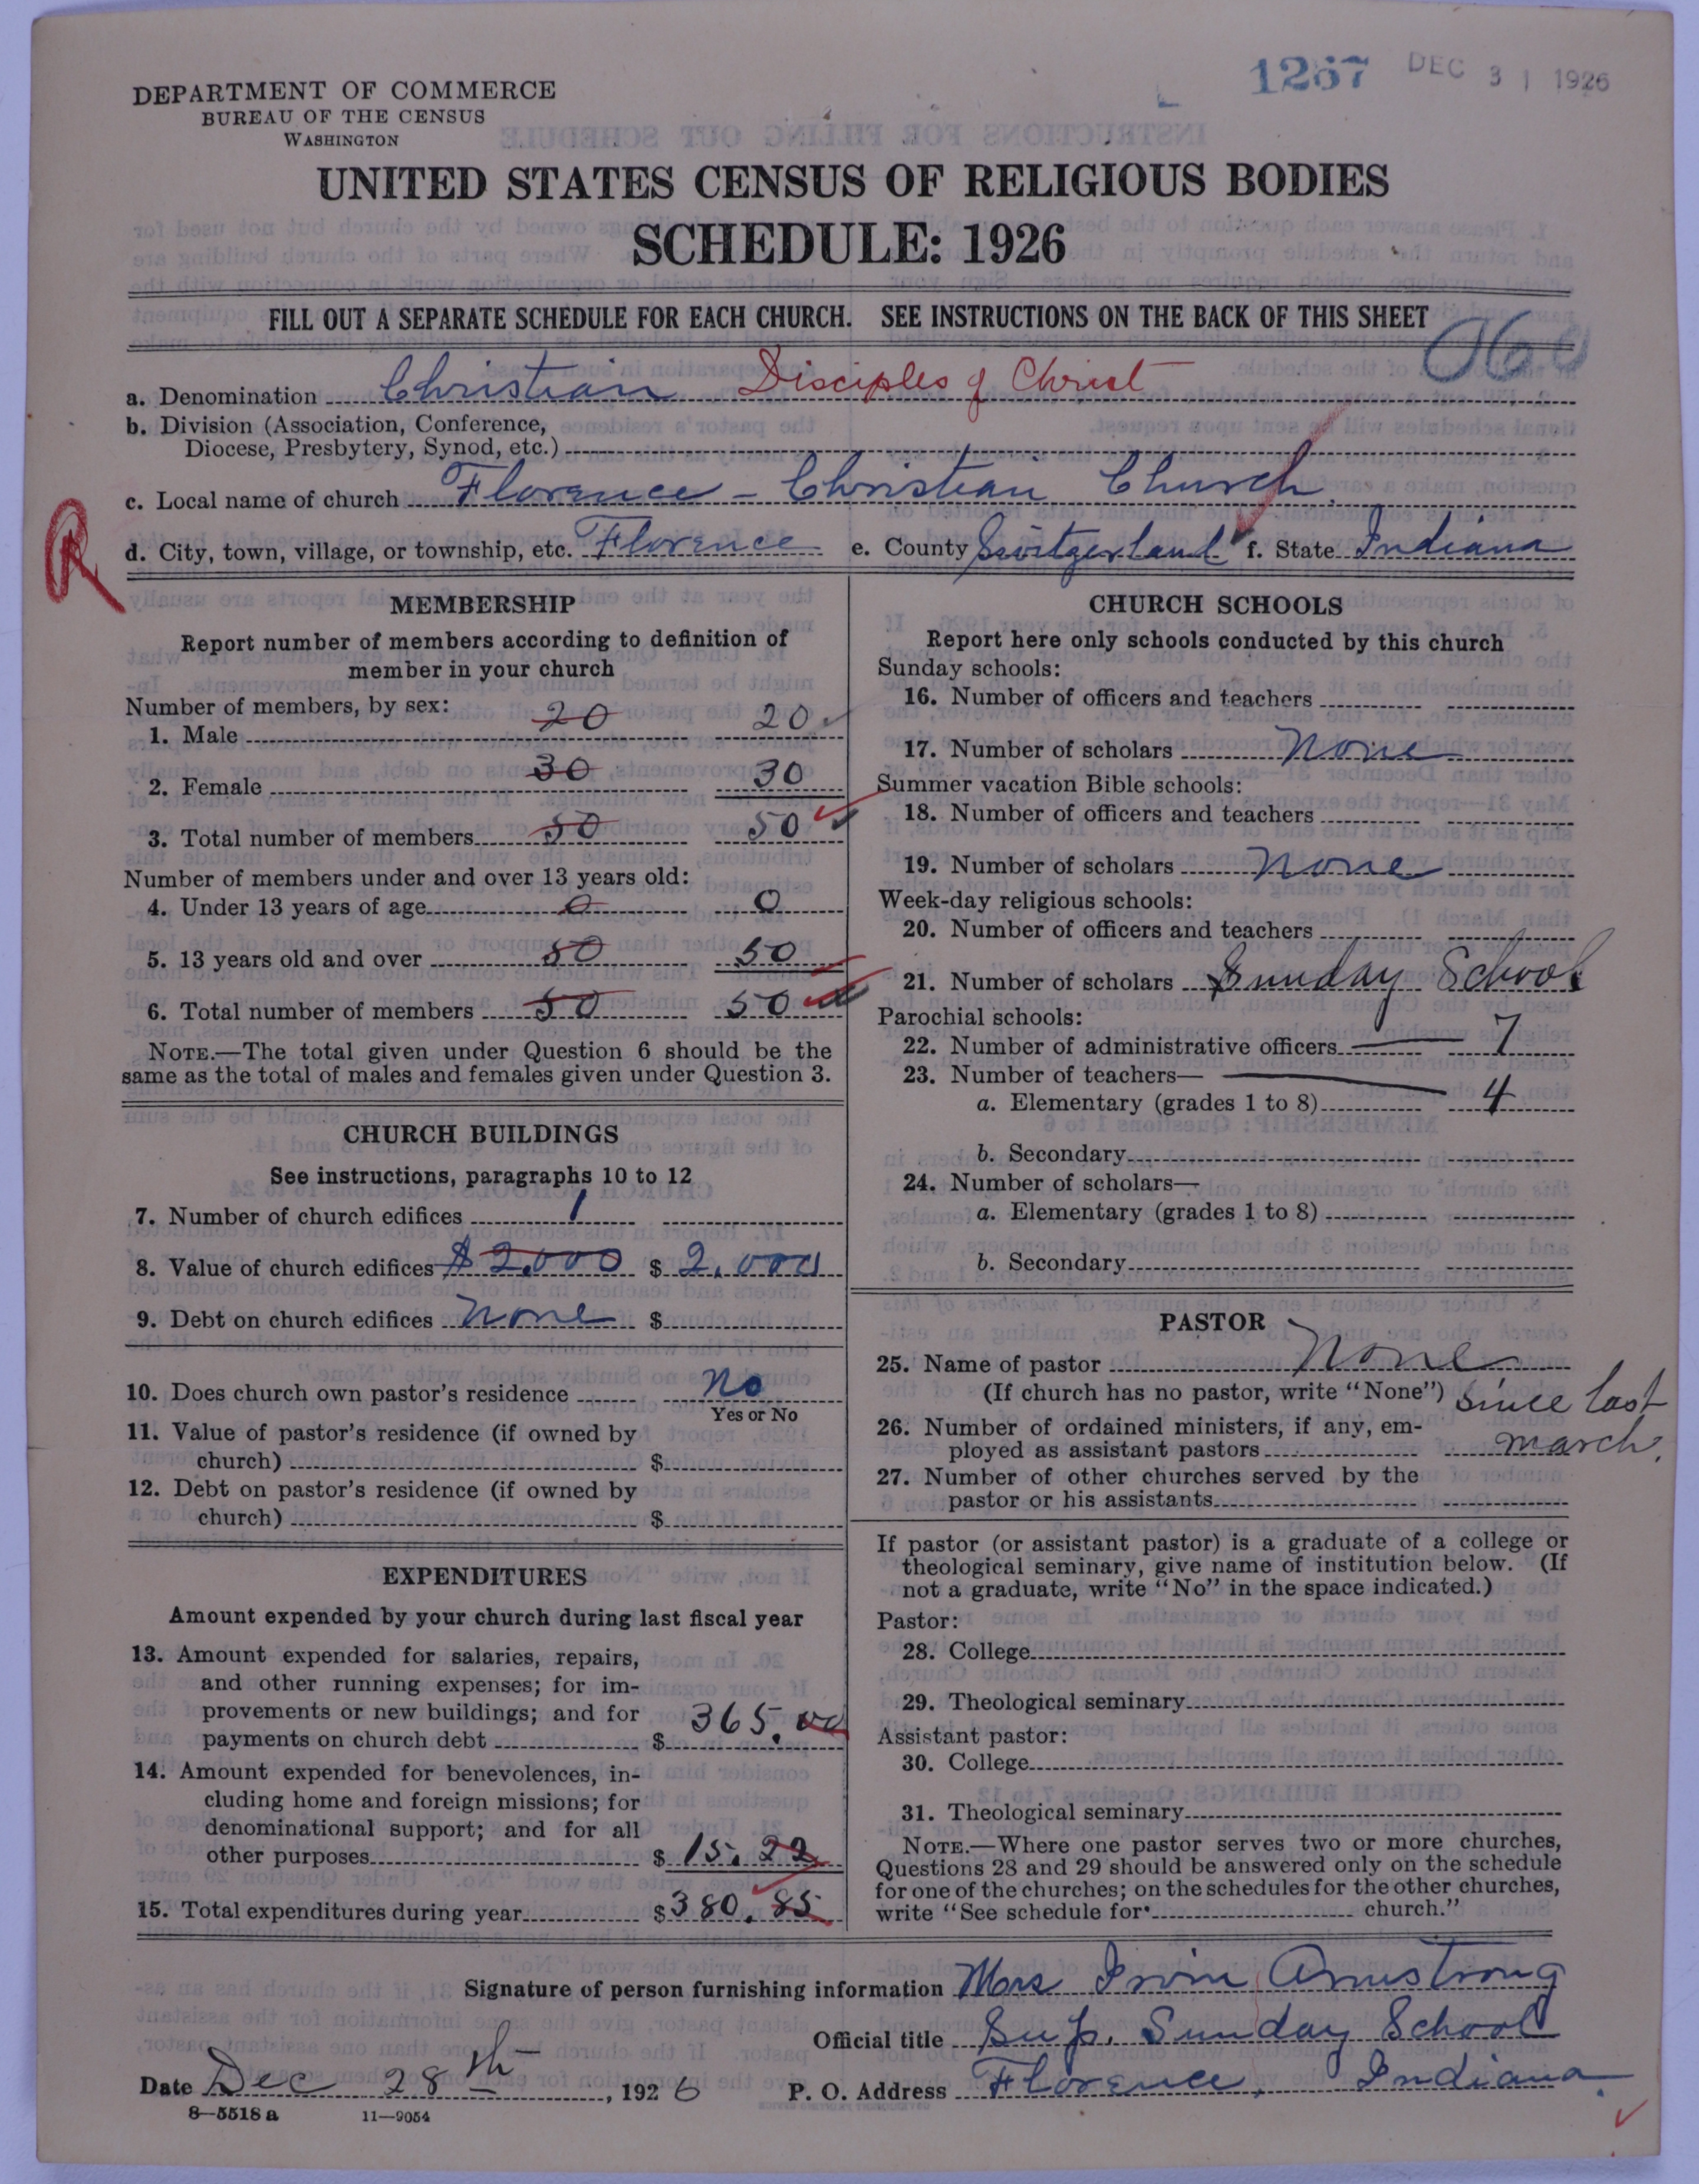 1267 DEC 31 1926
DEPARTMENT OF COMMERCE
BUREAU OF THE CENSUS
WASHINGTON
UNITED STATES CENSUS OF RELIGIOUS BODIES
SCHEDULE: 1926
FILL OUT A SEPARATE SCHEDULE FOR EACH CHURCH. SEE INSTRUCTIONS ON THE BACK OF THIS SHEET
a. Denomination Christian Disciples of Christ
b. Division (Association, Conference,
Diocese, Presbytery, Synod, etc.)
c. Local name of church Florence - Christian Church
R
d. City, town, village, or township, etc. Florence e. County Switzerland f. State Indiana
MEMBERSHIP
Report number of members according to definition of
member in your church
Number of members, by sex:
1. Male 20 20
2. Female 30 30
3. Total number of members 50 50
Number of members under and over 13 years old:
4. Under 13 years of age 0 0
5. 13 years old and over 50 50
6. Total number of members 50 50
NOTE.—The total given under Question 6 should be the
same as the total of males and females given under Question 3.
CHURCH BUILDINGS
See instructions, paragraphs 10 to 12
7. Number of church edifices 1
8. Value of church edifices $2,000 $ 2,000
9. Debt on church edifices None $
10. Does church own pastor's residence No
Yes or No
11. Value of pastor's residence (if owned by
church) $
12. Debt on pastor's residence (if owned by
church) $
EXPENDITURES
Amount expended by your church during last fiscal year
13. Amount expended for salaries, repairs,
and other running expenses; for im-
provements or new buildings; and for
payments on church debt $ 365.00
14. Amount expended for benevolences, in-
cluding home and foreign missions; for
denominational support; and for all
other purposes $ 15.22
15. Total expenditures during year $380.85
CHURCH SCHOOLS
Report here only schools conducted by this church
Sunday schools:
16. Number of officers and teachers
17. Number of scholars None
Summer vacation Bible schools:
18. Number of officers and teachers
19. Number of scholars None
Week-day religious schools:
20. Number of officers and teachers
21. Number of scholars Sunday School
Parochial schools:
22. Number of administrative officers 7
23. Number of teachers—
a. Elementary (grades 1 to 8) 4
b. Secondary
24. Number of scholars—
a. Elementary (grades 1 to 8)
b. Secondary
PASTOR
25. Name of pastor None
(If church has no pastor, write "None") Since last
26. Number of ordained ministers, if any, em-
ployed as assistant pastors march.
27. Number of other churches served by the
pastor or his assistants
If pastor (or assistant pastor) is a graduate of a college or
theological seminary, give name of institution below. (If
not a graduate, write "No" in the space indicated.)
Pastor:
28. College
29. Theological seminary
Assistant pastor:
30. College
31. Theological seminary
NOTE.—Where one pastor serves two or more churches,
Questions 28 and 29 should be answered only on the schedule
for one of the churches; on the schedules for the other churches,
write "See schedule for church."
Signature of person furnishing information Mrs Irvin Armstrong
Official title Sup. Sunday School
Date Dec 28th, 1926 P. O. Address Florence, Indiana.
8—5518 a 11—9054